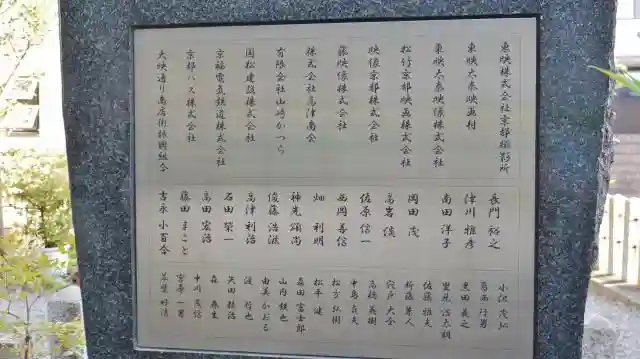 東映株式会社京都撮影所
東映太秦映画村
東映太秦映像株式会社
松竹京都映画株式会社
映像京都株式会社
藤映像株式会社
株式会社高津商会
有限会社山崎かつら
国松建設株式会社
京福電気鉄道株式会社
京都バス株式会社
大映通り商店街振興組合
長門裕之
津川雅彦
南田洋子
岡田茂
高岩淡
佐原信一
西岡善信
畑利明
神先頌尚
後藤浩滋
高津利治
石田榮一
高田宏治
藤田まこと
吉永小百合
小沢茂弘
葛西行男
里見浩太朗
佐藤雅夫
斉藤兼人
宍戸大全
高橋英樹
中島貞夫
松方弘樹
松平健
森田富士郎
山内鉄也
由美かおる
渡哲也
矢田精治
森泰生
中川茂信
宮原一男